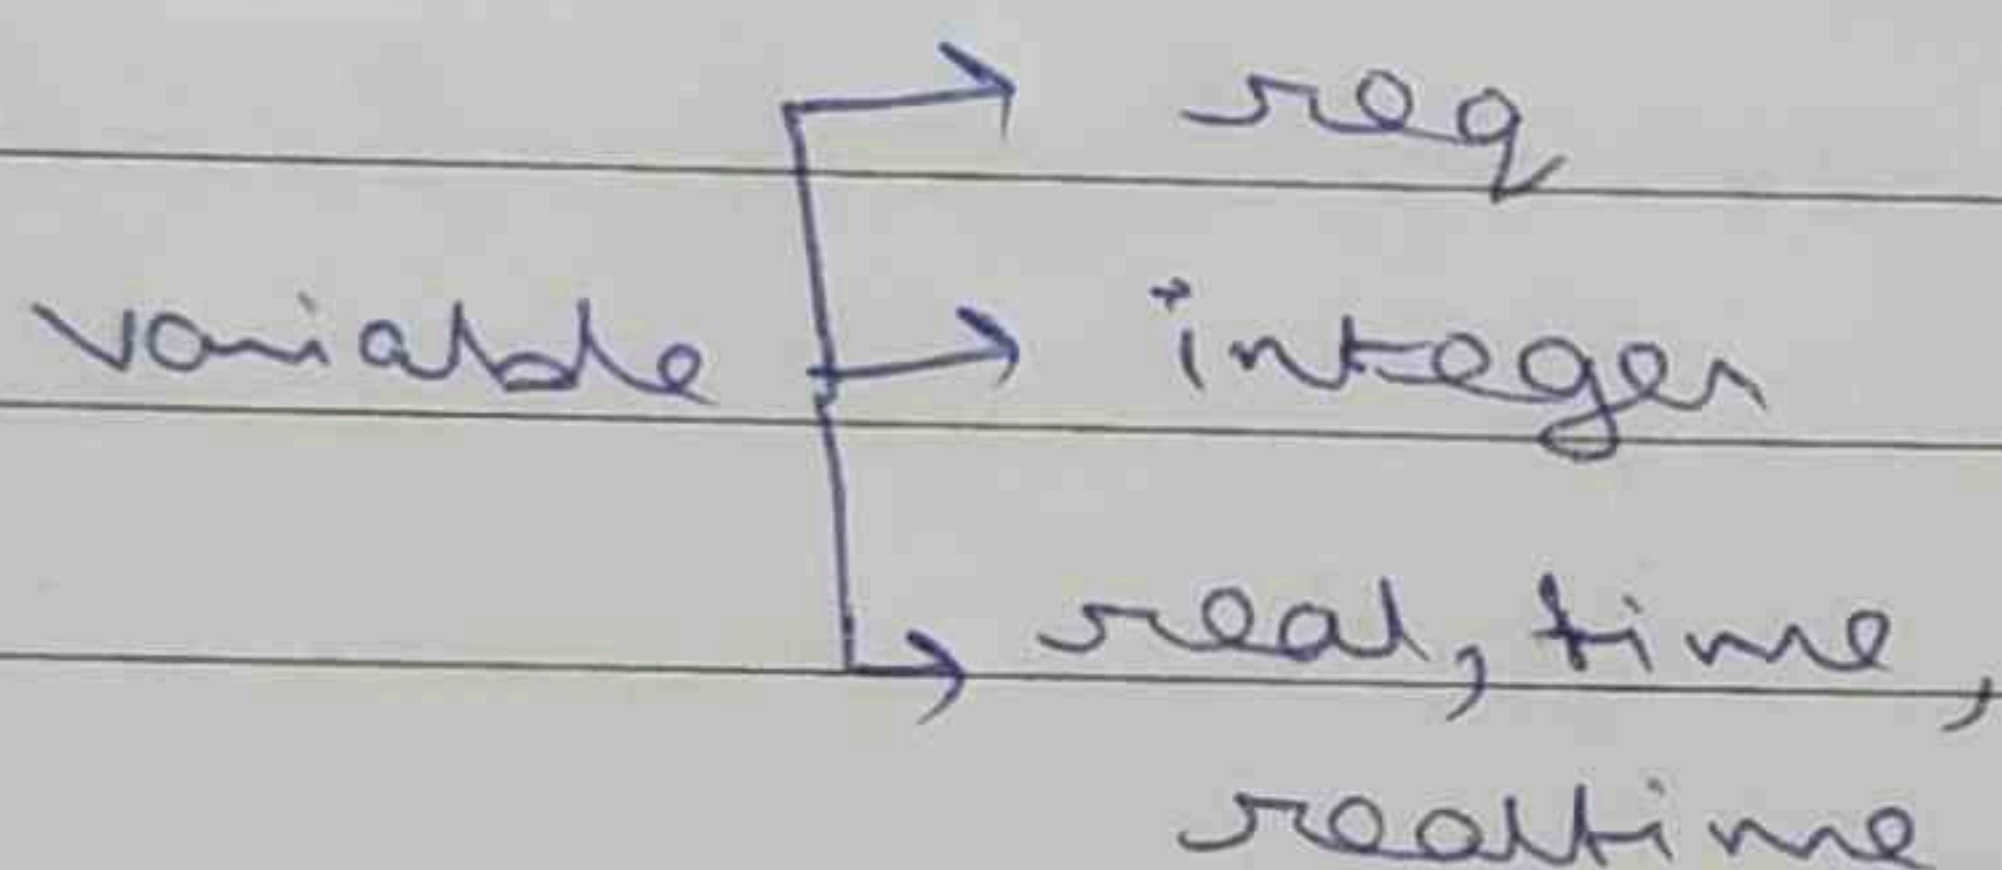 reg
variable integer
real, time,
realtime